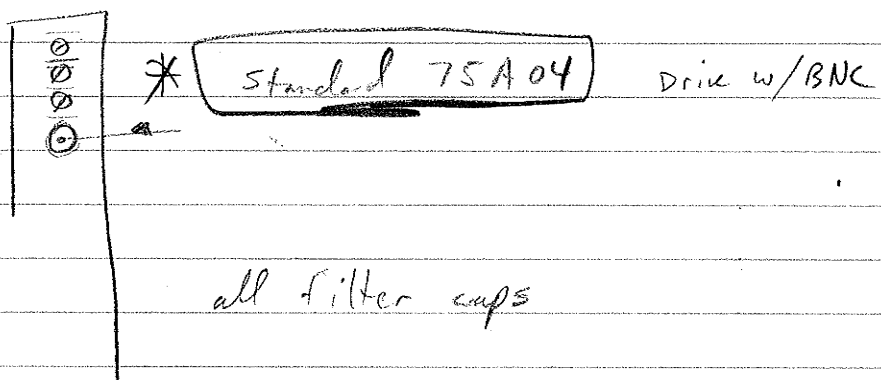 * Standard 75A04 Drive w/BNC
all filter caps